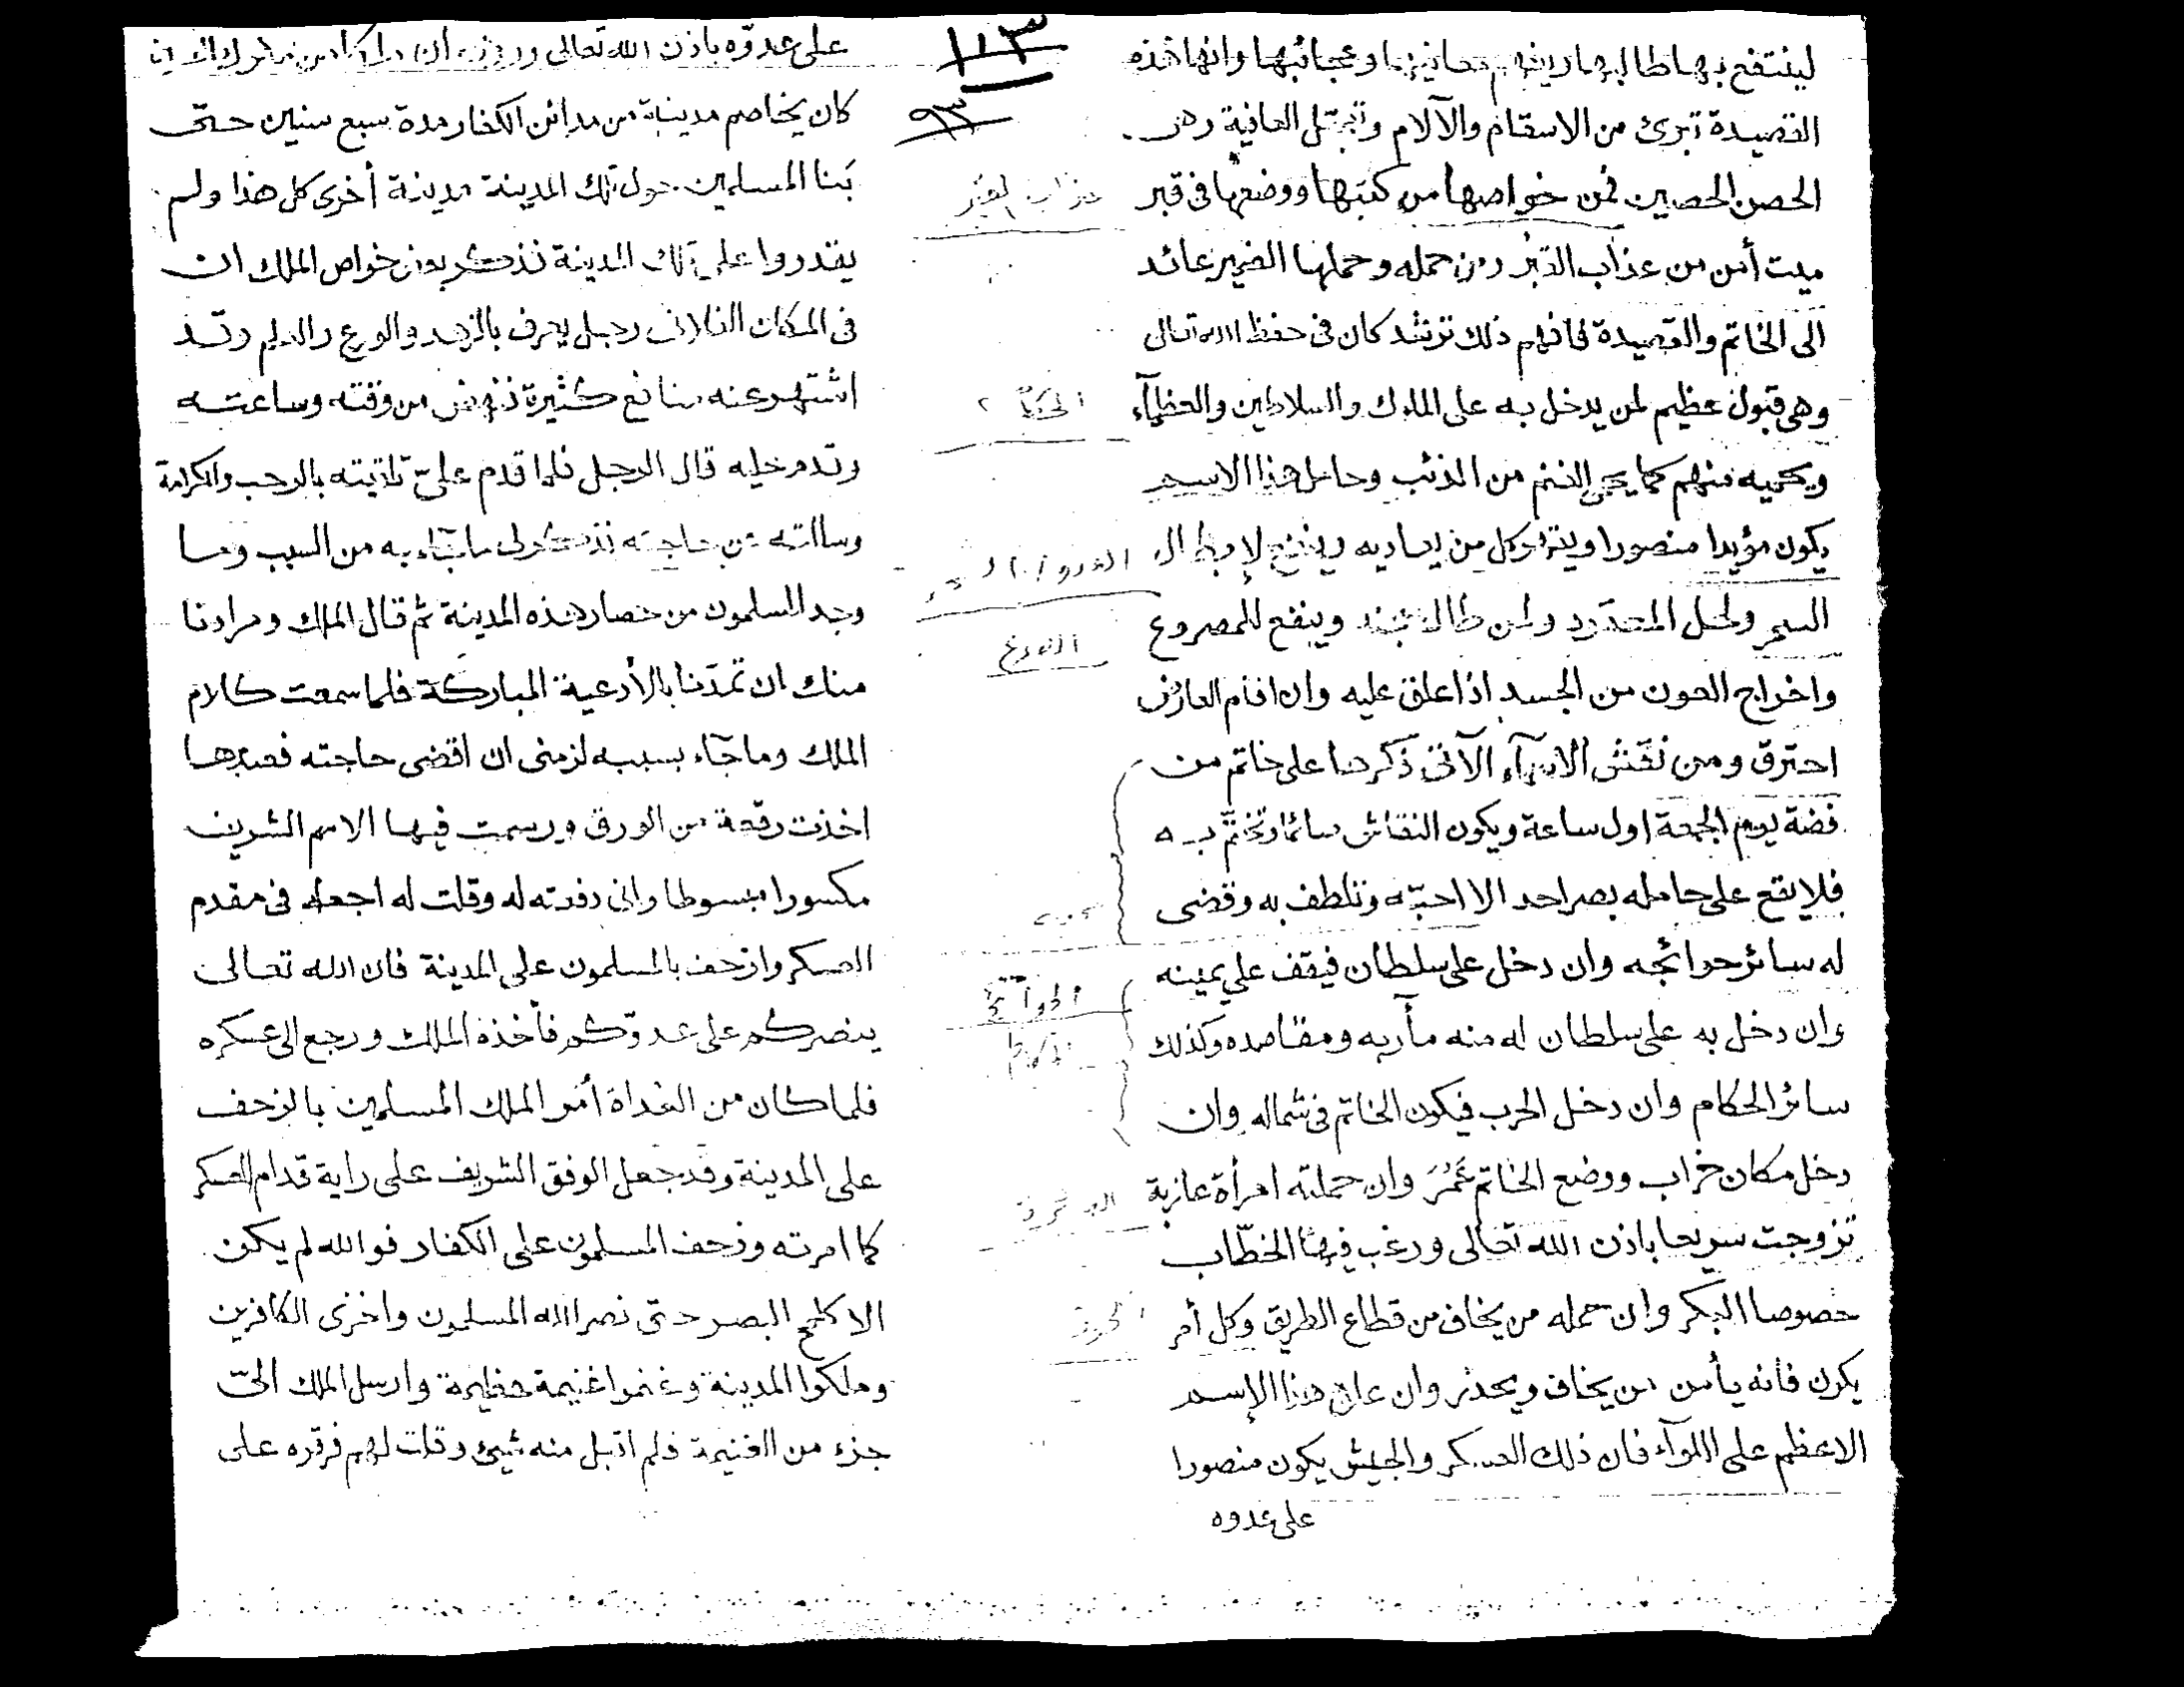 لينتفع بها طالبها ويفهم معانيها وعجائبها وانها هذه
القصيدة تبرئ من الاسقام والآلام وتجلّ العافية وهى
الحصن الحصين فمن خواصها من كتبها ووضعها فى قبر
ميت أمن من عذاب القبر ومن حمله وحملها الضمير عائد
الى الخاتم والقصيدة فافهم ذلك ترشد كان فى حفظ الله تعالى
وهى قبول عظيم لمن يدخل به على الملوك والسلاطين والعظمآء
ويحميه منهم كما يحمى الغنم من الذئب وحامل هذا الاسم
يكون مؤيدا منصورا ويقهر كل من يعاديه وينفع لإبطال
السحر ولحل المعقود ولمن طال سجنه وينفع للمصروع
واخراج العون من الجسد اذا علق عليه وان اقام العارض
احترق ومن نقش الاسمآء الآتى ذكرها على خاتم من
فضة يوم الجمعة اول ساعة ويكون النقاش صائما وتختّم به
فلا يقع على حامله بصر احد الا احبّه وتلطف به وقضى
له سائر حوائجه وان دخل على سلطان فيقف على يمينه
وان دخل به على سلطان له منه مأربه ومقاصده وكذلك
سائر الحكام وان دخل الحرب فيكون الخاتم فى شماله وان
دخل مكان خراب ووضع الخاتم عَمُرَ وان حملته امرأة عازبة
تزوجت سريعا باذن الله تعالى ورغب فيها الخطّاب
خصوصا البكر وان حمله من يخاف من قطاع الطريق وكل أمر
يكون فانه يأمن من يخاف ويحذر وان علق هذا الإسم
الاعظم على اللوآء فان ذلك العسكر والجيش يكون منصورا
على عدوه
١١٣
٩٣
عذاب القبر
الصرع
الحوآئج
الحكام
على عدوّه باذن الله تعالى
كان يخاصم مدينة من مدائن الكفار مدة سبع سنين حتى
بَنا المسلمين حول تلك المدينة مدينة أخرى كل هذا ولم
يقدروا على تلك المدينة فذكر بعض خواص الملك ان
فى المكان الفلانى رجل يعرف بالزهد والورع والعلم وقد
اشتهر عنه منافع كثيرة فنهض من وقته وساعته
وقدم خليه قال الرجل فلما قدم علىّ تلاقيته بالرحب والكرامة
وسالته عن حاجته فذكر لى ما جآء به من السبب وما
وجد المسلمون من حصار هذه المدينة ثم قال الملك ومرادنا
منك ان تمدّنا بالأدعية المباركة فلما سمعت كلام
الملك وما جآء بسببه لزمنى ان اقضى حاجته فعندها
اخذت رقعة من الورق ورسمت فيها الاسم الشريف
مكسورا مبسوطا وانى دفعته له وقلت له اجعله فى مقدم
العسكر وازحف بالمسلمون على المدينة فان الله تعالى
ينصركم على عدوّكم فأخذه الملك ورجع الى عسكره
فلما كان من الغداة أمر الملك المسلمين بالزحف
على المدينة وقد جعل الوفق الشريف على راية قدام العسكر
كما امرته وزحف المسلمون على الكفار فوالله لم يكن
الا كلمح البصر حتى نصر الله المسلمون واخزى الكافرين
وملكوا المدينة وغنموا غنيمة عظيمة وارسل الملك الىّ
جزء من الغنيمة فلم اقبل منه شيئ وقلت لهم فرقره على